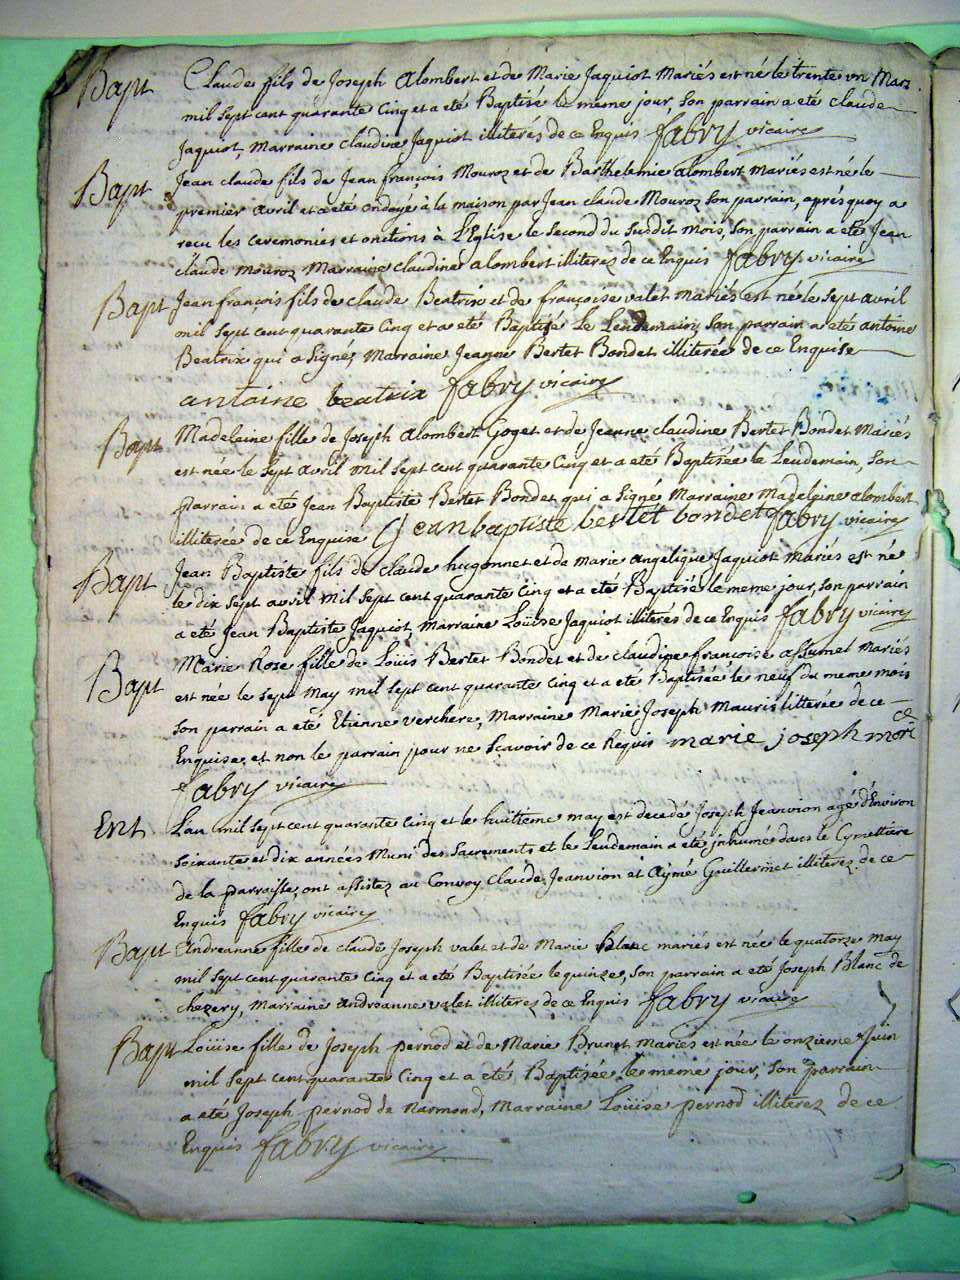 Bapt Claude fils de Joseph Alombert et de Marie Jaquiot Mariés est né le trente un Mars
mil sept cent quarante Cinq et a eté Baptisé le meme jour, son parrain a eté claude
Jaquiot, Marraine claudine Jaquiot illiterés de ce Enquis fabry vicaire
Bapt Jean claude fils de Jean françois Mouroz et de Barthelemie alombert mariés est né le
premier avril et a eté ondoyé à la maison par Jean claude Mouroz son parrain, aprés quoy a
recu les ceremonies et onctions à L'Eglise le second du susdit mois, son parrain a eté Jean
claude mouroz Marraine claudine alombert illiterez de ce Enquis fabry vicaire
Bapt Jean françois fils de claude Beatrix et de françoise valet mariés est né le sept avril
mil sept cent quarante Cinq et a eté Baptisé Le Lendemain, son parrain a eté antoine
Beatrix qui a signé, Marraine Jeanne Bertet Bondet illiterée de ce Enquise
antoine beatrix fabry vicaire
Bapt Madeleine fille de Joseph alombert Goget et de Jeanne claudine Bertet Bondet Mariés
est née le sept avril mil sept cent quarante Cinq et a eté Baptisée le Lendemain, son
parrain a eté Jean Baptiste Bertet Bondet qui a signé Marraine Madeleine alombert
illiterée de ce Enquise Jean baptiste bertet bondet fabry vicaire
Bapt Jean Baptiste fils de claude hugonnet et de marie angelique Jaquiot mariés est né
le dix sept avril mil sept cent quarante Cinq et a eté Baptisé le meme jour, son parrain
a eté Jean Baptiste Jaquiot, Marraine Loüise Jaquiot illiterés de ce Enquis fabry vicaire
Bapt Marie Rose fille de Loüis Bertet Bondet et de claudine francoise assumel Mariés
est née le sept may mil sept cent quarante Cinq et a eté Baptisée le neuf du meme mois
son parrain a eté Etienne verchere, Marraine Marie Joseph Mauris litterée de ce
Enquise, et non le parrain pour ne scavoir de ce Requis marie joseph mori ce
fabry vicaire
Ent Lan mil sept cent quarante Cinq et le huitieme may est decedé Joseph Jeanvion agé d'Environ
soixante et dix années Muni des Sacrements et le Lendemain a eté inhumé dans le Cymettiere
de la parroisse, ont assistez au Convoy Claude Jeanvion et Aymé Guillermet illiterez de ce
Enquis fabry vicaire
Bapt Andreanne fille de claude Joseph valet et de Marie Blanc mariés est née le quatorze may
mil sept cent quarante Cinq et a eté Baptisée le quinze, son parrain a eté Joseph Blanc de
chezery, Marraine andreanne valet illiterés de ce Enquis fabry vicaire
Bapt Loüise fille de Joseph pernod et de Marie Brunet mariés est née le onzieme Juin
mil sept cent quarante Cinq et a eté Baptisée, le meme jour, son parrain
a eté Joseph pernod de Narmond, Marraine Loüise pernod illiterez de ce
Enquis fabry vicaire